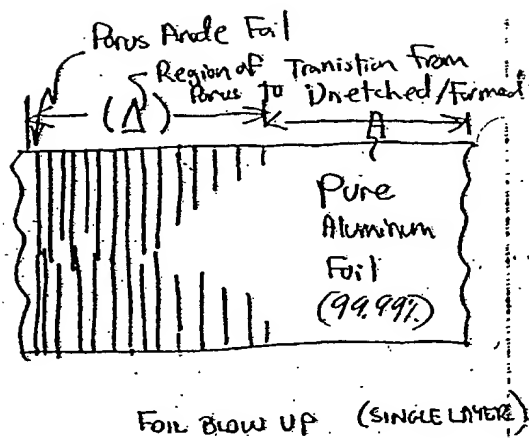 Porus Anode Foil
Region of Transistion From
Porus to Unetched/Formed
(Δ)
A
Pure
Aluminum
Foil
(99.99%)
FOIL BLOW UP (SINGLE LAYER)